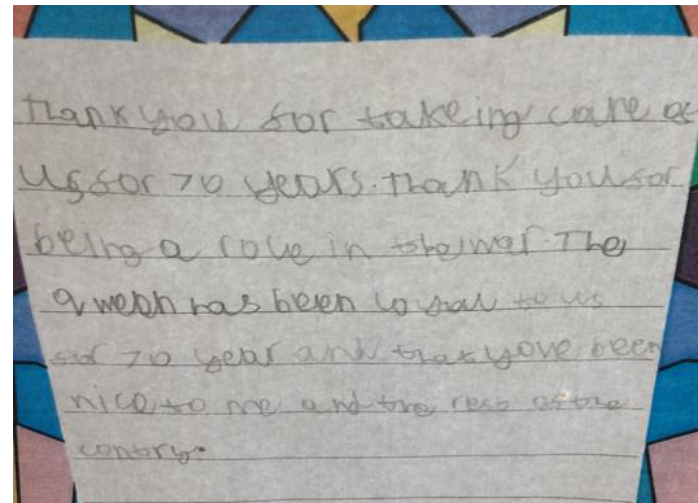 thank you for takeing care of
us for 70 years. thank you for
being a role in the war. The
qween has been loyal to us
for 70 year and that yove been
nice to me and the rest of the
contry.